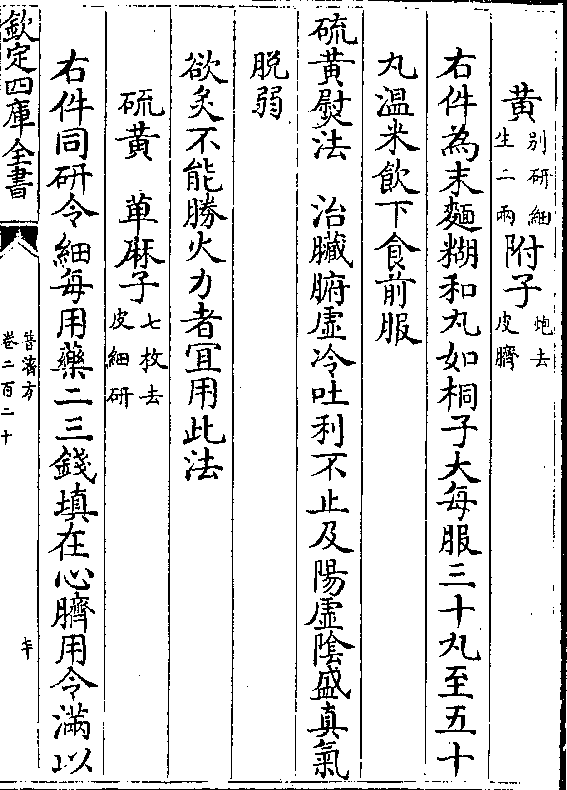 黄別研細生二兩附子炮去皮臍
右件為末麵糊和丸如桐子大每服三十丸至五十
丸温米飲下食前服
硫黄熨法 治臟腑虛冷吐利不止及陽虛陰盛真氣
脱弱
欲灸不能勝火力者宜用此法
硫黄 萆麻子七枚去皮細研
右件同研令細每用藥二三錢填在心臍用令滿以
欽定四庫全書
普濟方
卷二百二十